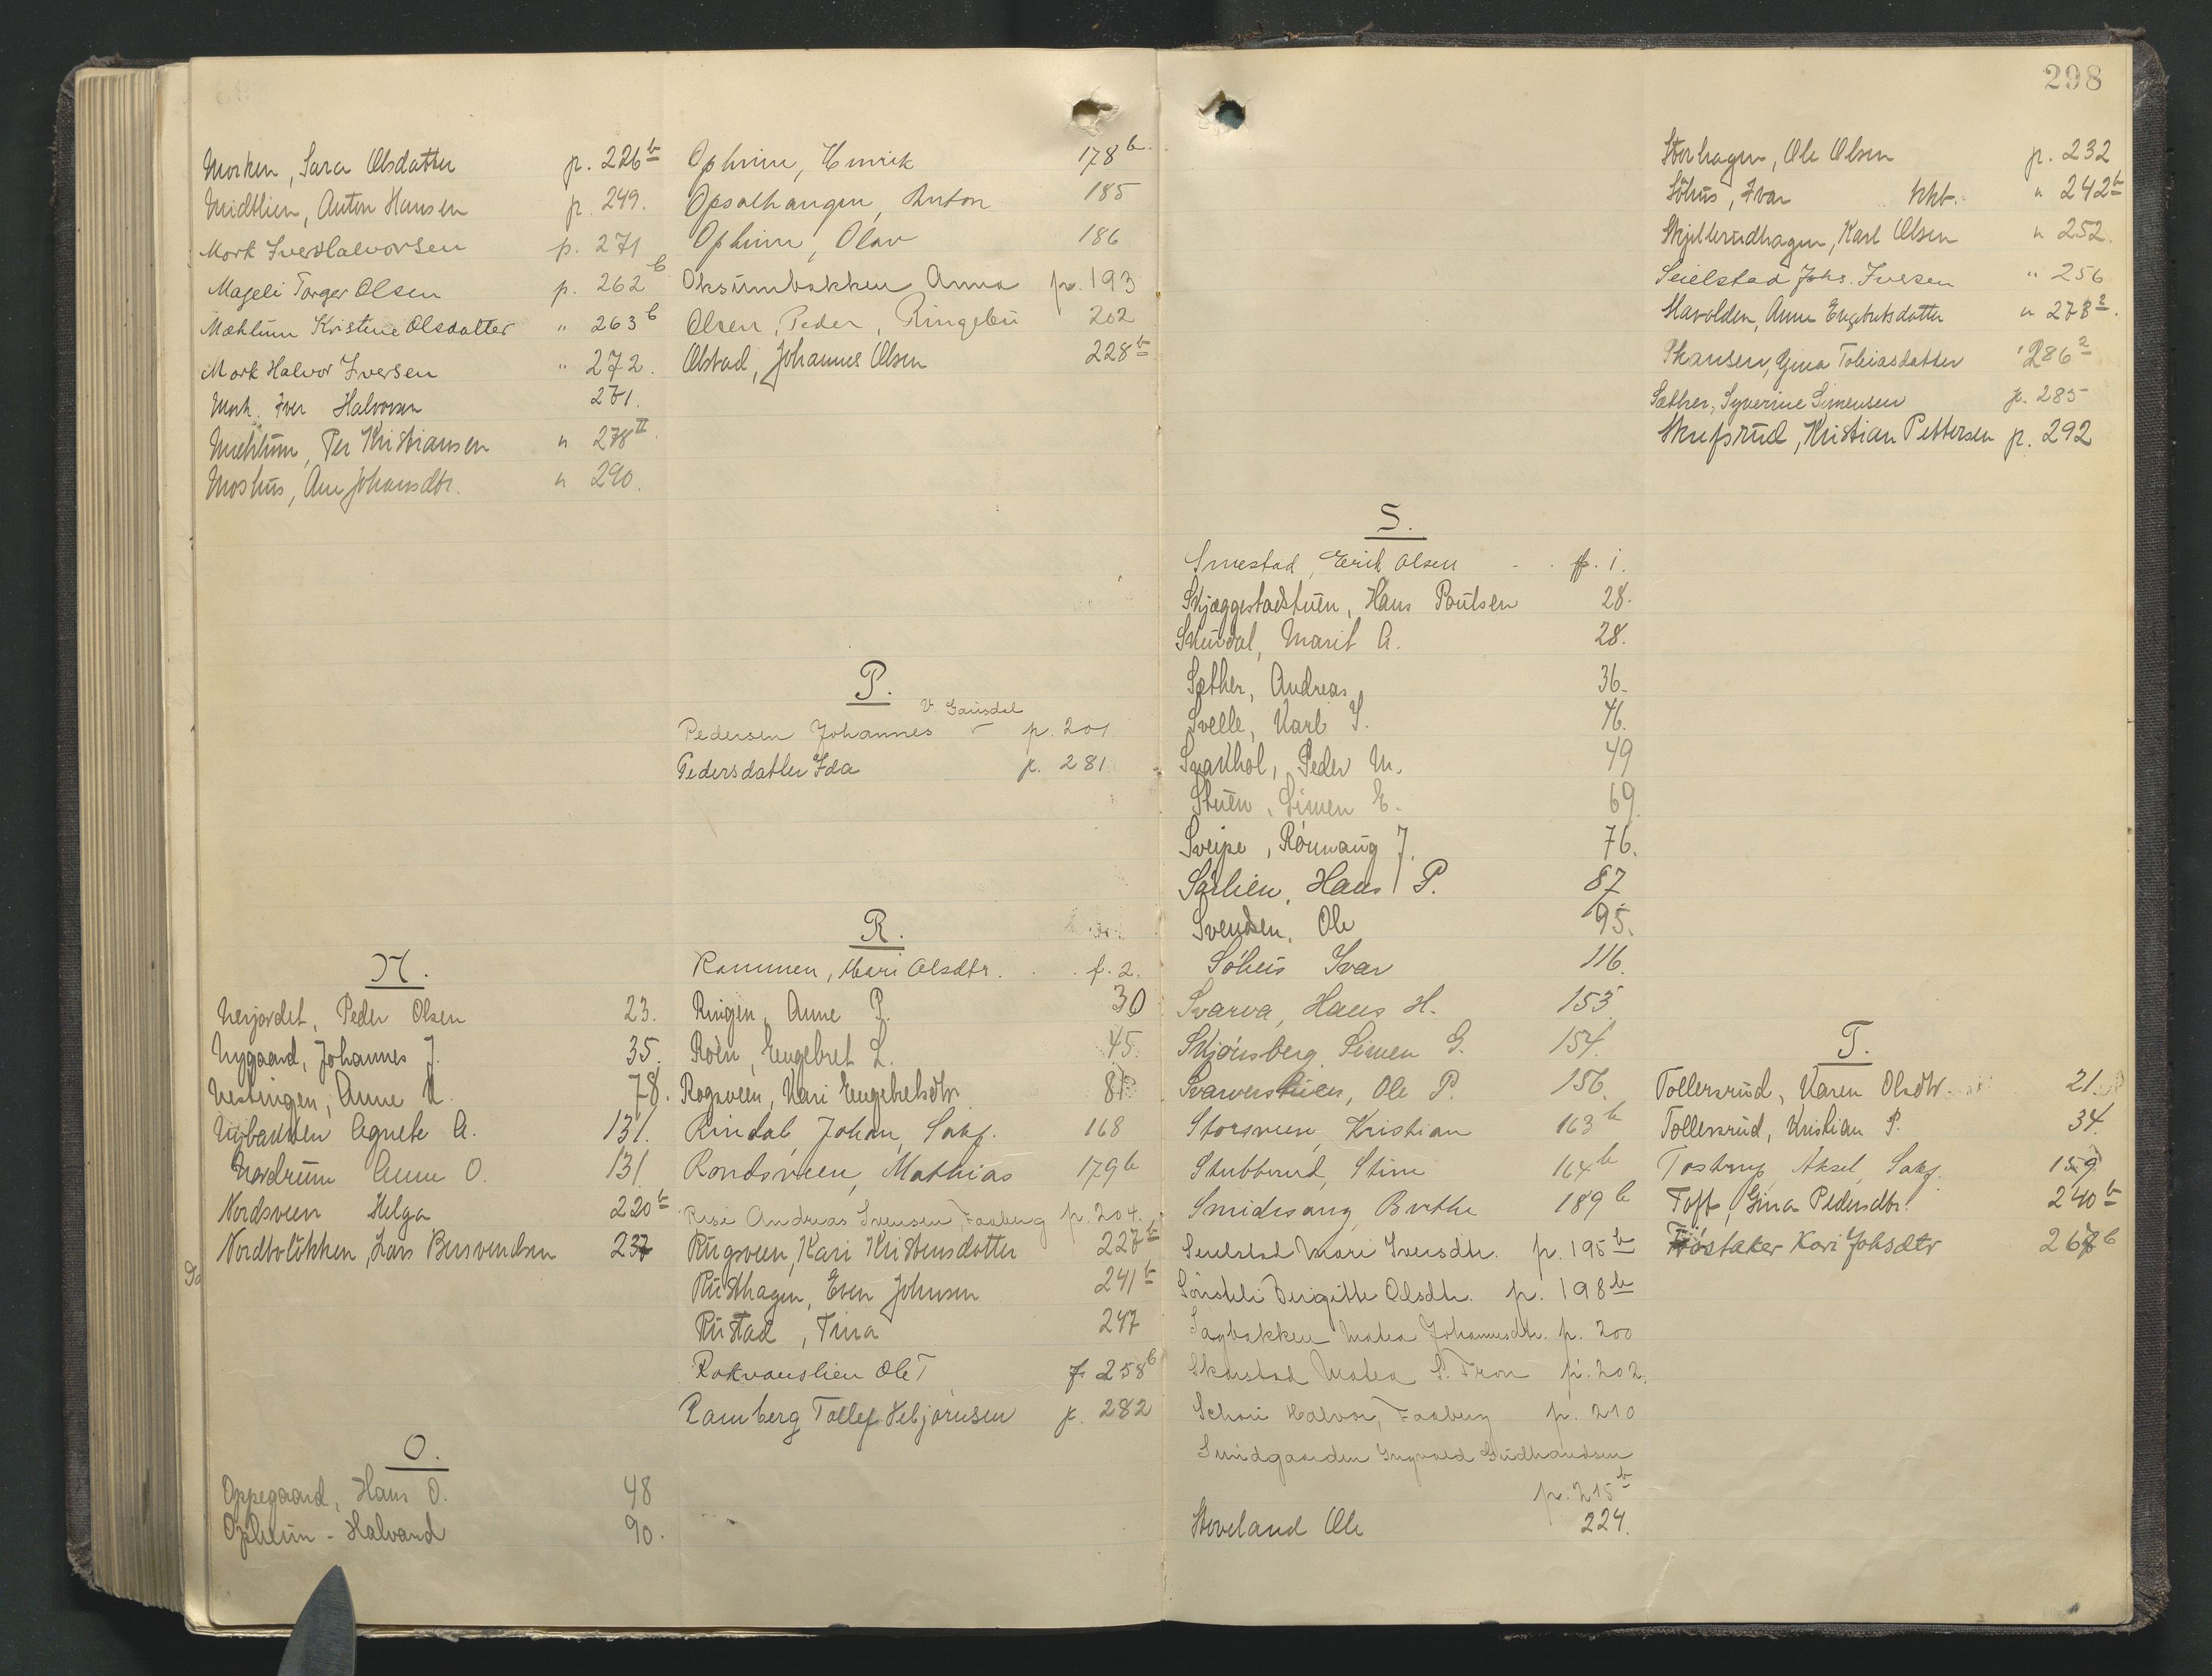 Morken, Sara Olsdatter p. 226b
Midtlien, Anton Hansen p. 249.
Mork Iver Halvorsen p. 271
Mageli Torger Olsen p. 262b
Mæhlum Kristine Olsdatter " 263b
Mork Halvor Iversen " 272.
Mork. Iver Halvorsen 271.
Mæhlum, Per Kristiansen " 278II
Moshus, Ane Johansdtr. " 290.
N.
Nerjordet, Peder Olsen 23.
Nygaard, Johannes J. 35.
Nestingen, Anne 78.
Nybakken Agnete A. 131.
Nordrum Anne O. 131
Nordsveen Helga 220b
Nordbolökken, Lars Bersvendsen 237
O.
Oppegaard, Hans O. 48
Opheim - Halvard 90.
Opheim, Henrik 178b
Opsalhaugen, Anton 185
Opheim, Olav 186
Oksumbakken Anna p. 193
Olsen, Peder, Ringebu 202
Olstad, Johannes Olsen 228b
P.
V. Gausdal
Pedersen Johannes - p. 201
Pedersdatter Ida p. 281
R.
Rammen, Mari Olsdtr. . . f. 2.
Ringen, Anne P. 30
Roën, Engebret L. 45.
Rogsveen, Kari Engebretsdtr. 81
Rindal, Johan, Sakf. 168
Rondsveen, Mathias 179b
Rise Andreas Svensen, Faaberg p. 204.
Rugsveen, Kari Kristensdatter 227b
Rusthagen, Even Johnsen 241b
Rustad, Tina 247
Rokvamslien Ole T f 258b
Ramberg Tollef Hebjørnsen p. 282
298
S.
Smestad, Erik Olsen - . p. 1.
Skjæggestadstuen, Hans Poulsen 28.
Skurdal, Marit A. 28.
Sæther, Andreas 36.
Svelle, Karl I. 46.
Svakhol, Peder M. 49
Stuen, Simen E. 69
Sveipe, Rönnaug J. 76.
Sørlien, Hans P. 87
Svendsen, Ole 95.
Søhus Ivar 116.
Svarva, Hans H. 153
Skjønsberg Simen G. 154.
Svarverstuen, Ole P. 156
Storsveen, Kristian 163b
Stubberud, Stine 164b
Smidesang, Berthe 189b
Seielstad Mari Iversdtr. p. 195b
Sønsteli Birgitte Olsdtr. p. 198b
Sagbakken Matea Johannesdtr. p. 200
Skarstad Matea S. Fron p. 202.
Schøi Halvor, Faaberg p. 210
Sundgaarden Ingvald Gudbrandsen
p. 215b
Storeland Ole 224.
Storhagen, Ole Olsen p. 232
Söhus, Ivar hkt. " 242b
Skjellerudhagen, Karl Olsen " 252.
Seielstad Johs. Iversen " 256
Skarolden, Anne Engebretsdatter " 278 2.
Skansen, Gina Tobiasdatter 286 2
Sæther, Syverine Simensen p. 285
Skufsrud, Kristian Pettersen p. 292
T.
Tollersrud, Karen Olsdtr. 21.
Tollersrud, Kristian P. 34
Tostrup, Aksel, Sakf. 159
Toft, Gina Pedersdtr. 240b
Fröstaker Kari Johsdtr 267b